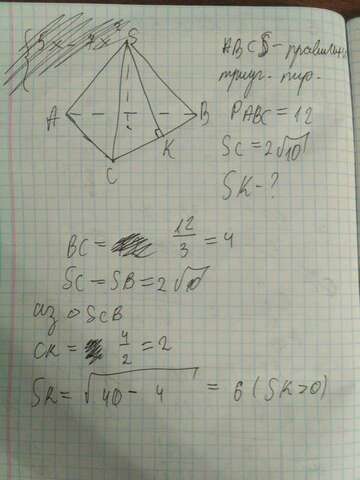 S
A
B
C
K
ABCS - правильн.
триуг. пир.
P ABC = 12
SC = 2√10
SK - ?
BC = 12/3 = 4
SC = SB = 2√10
из △SCB
CK = 4/2 = 2
SK = √40 - 4 = 6 (SK>0)